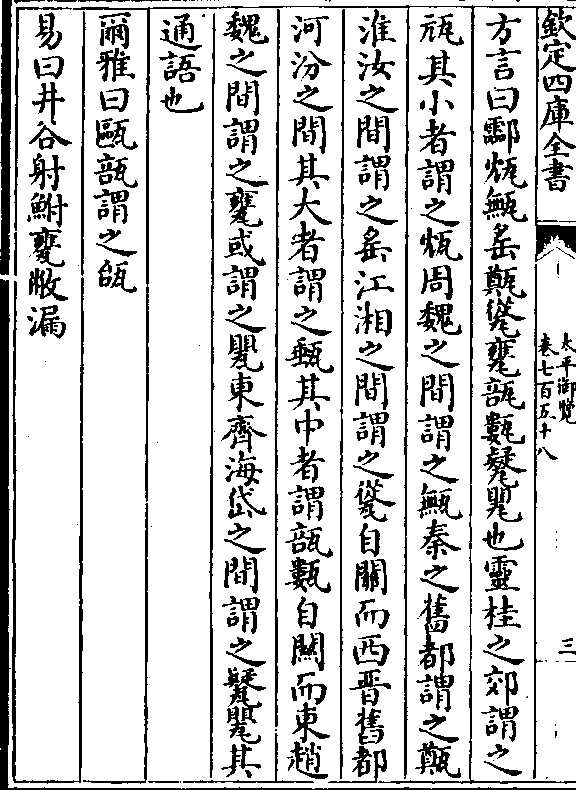 欽定四庫全書
太平御覽
卷七百五十八
三
方言曰㼖㼚甌䍃甀㼱甕瓿甊㽀甖也靈桂之郊謂之
瓶其小者謂之㼚周魏之間謂之甌秦之舊都謂之甀
淮汝之間謂之䍃江湘之間謂之㼱自關而西晉舊都
河汾之間其大者謂之甀其中者謂瓿甊自關而東趙
魏之間謂之甕或謂之甖東齊海岱之間謂之甖其
通語也
爾雅曰甌瓿謂之瓵
易曰井谷射鮒甕敝漏